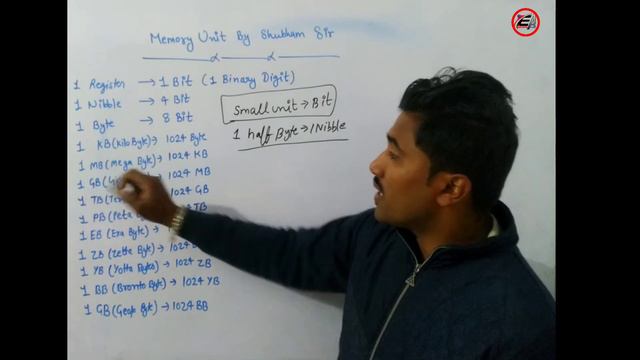 Memory Unit By Shubham Sir
1 Register → 1 Bit (1 Binary Digit)
1 Nibble → 4 Bit
1 Byte → 8 Bit
1 KB (Kilo Byte) → 1024 Byte
1 MB (Mega Byte) → 1024 KB
1 GB → 1024 MB
1 TB → 1024 GB
1 PB (Peta → TB
1 EB (Exa Byte) → 1024
1 ZB (Zetta Byte) → 1024
1 YB (Yotta Byte) → 1024 ZB
1 BB (Bronto Byte) → 1024 YB
1 GB (Geop Byte) → 1024 BB
Small unit → Bit
1 half Byte → 1 Nibble